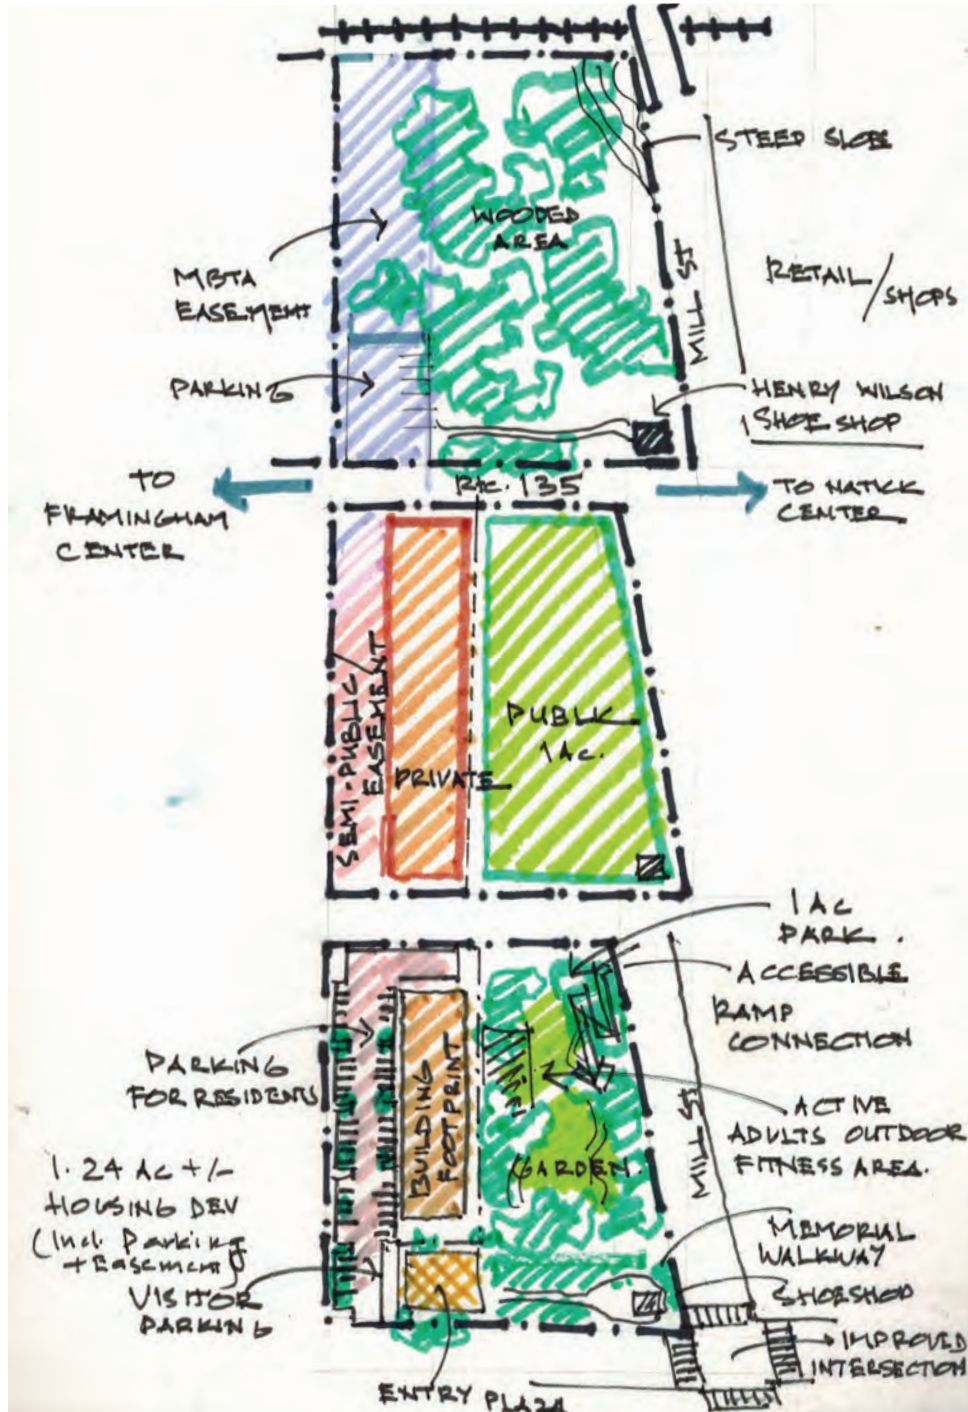 STEEP SLOPE
WOODED
AREA
RETAIL /
SHOPS
MBTA
EASEMENT
MILL ST
PARKING
HENRY WILSON
SHOE SHOP
TO
FRAMINGHAM
CENTER
Rte. 135
TO NATICK
CENTER
SEMI-PUBLIC/
EASEMENT
PRIVATE
PUBLIC
1 AC.
1 AC
PARK.
ACCESSIBLE
RAMP
CONNECTION
PARKING
FOR RESIDENTS
BUILDING
FOOTPRINT
ACTIVE
ADULTS OUTDOOR
FITNESS AREA.
GARDEN.
MILL ST
1.24 AC +/-
HOUSING DEV
(Incl. Parking
+ Easement)
VISITOR
PARKING
MEMORIAL
WALKWAY
SHOESHOP
IMPROVED
INTERSECTION
ENTRY PLAZA